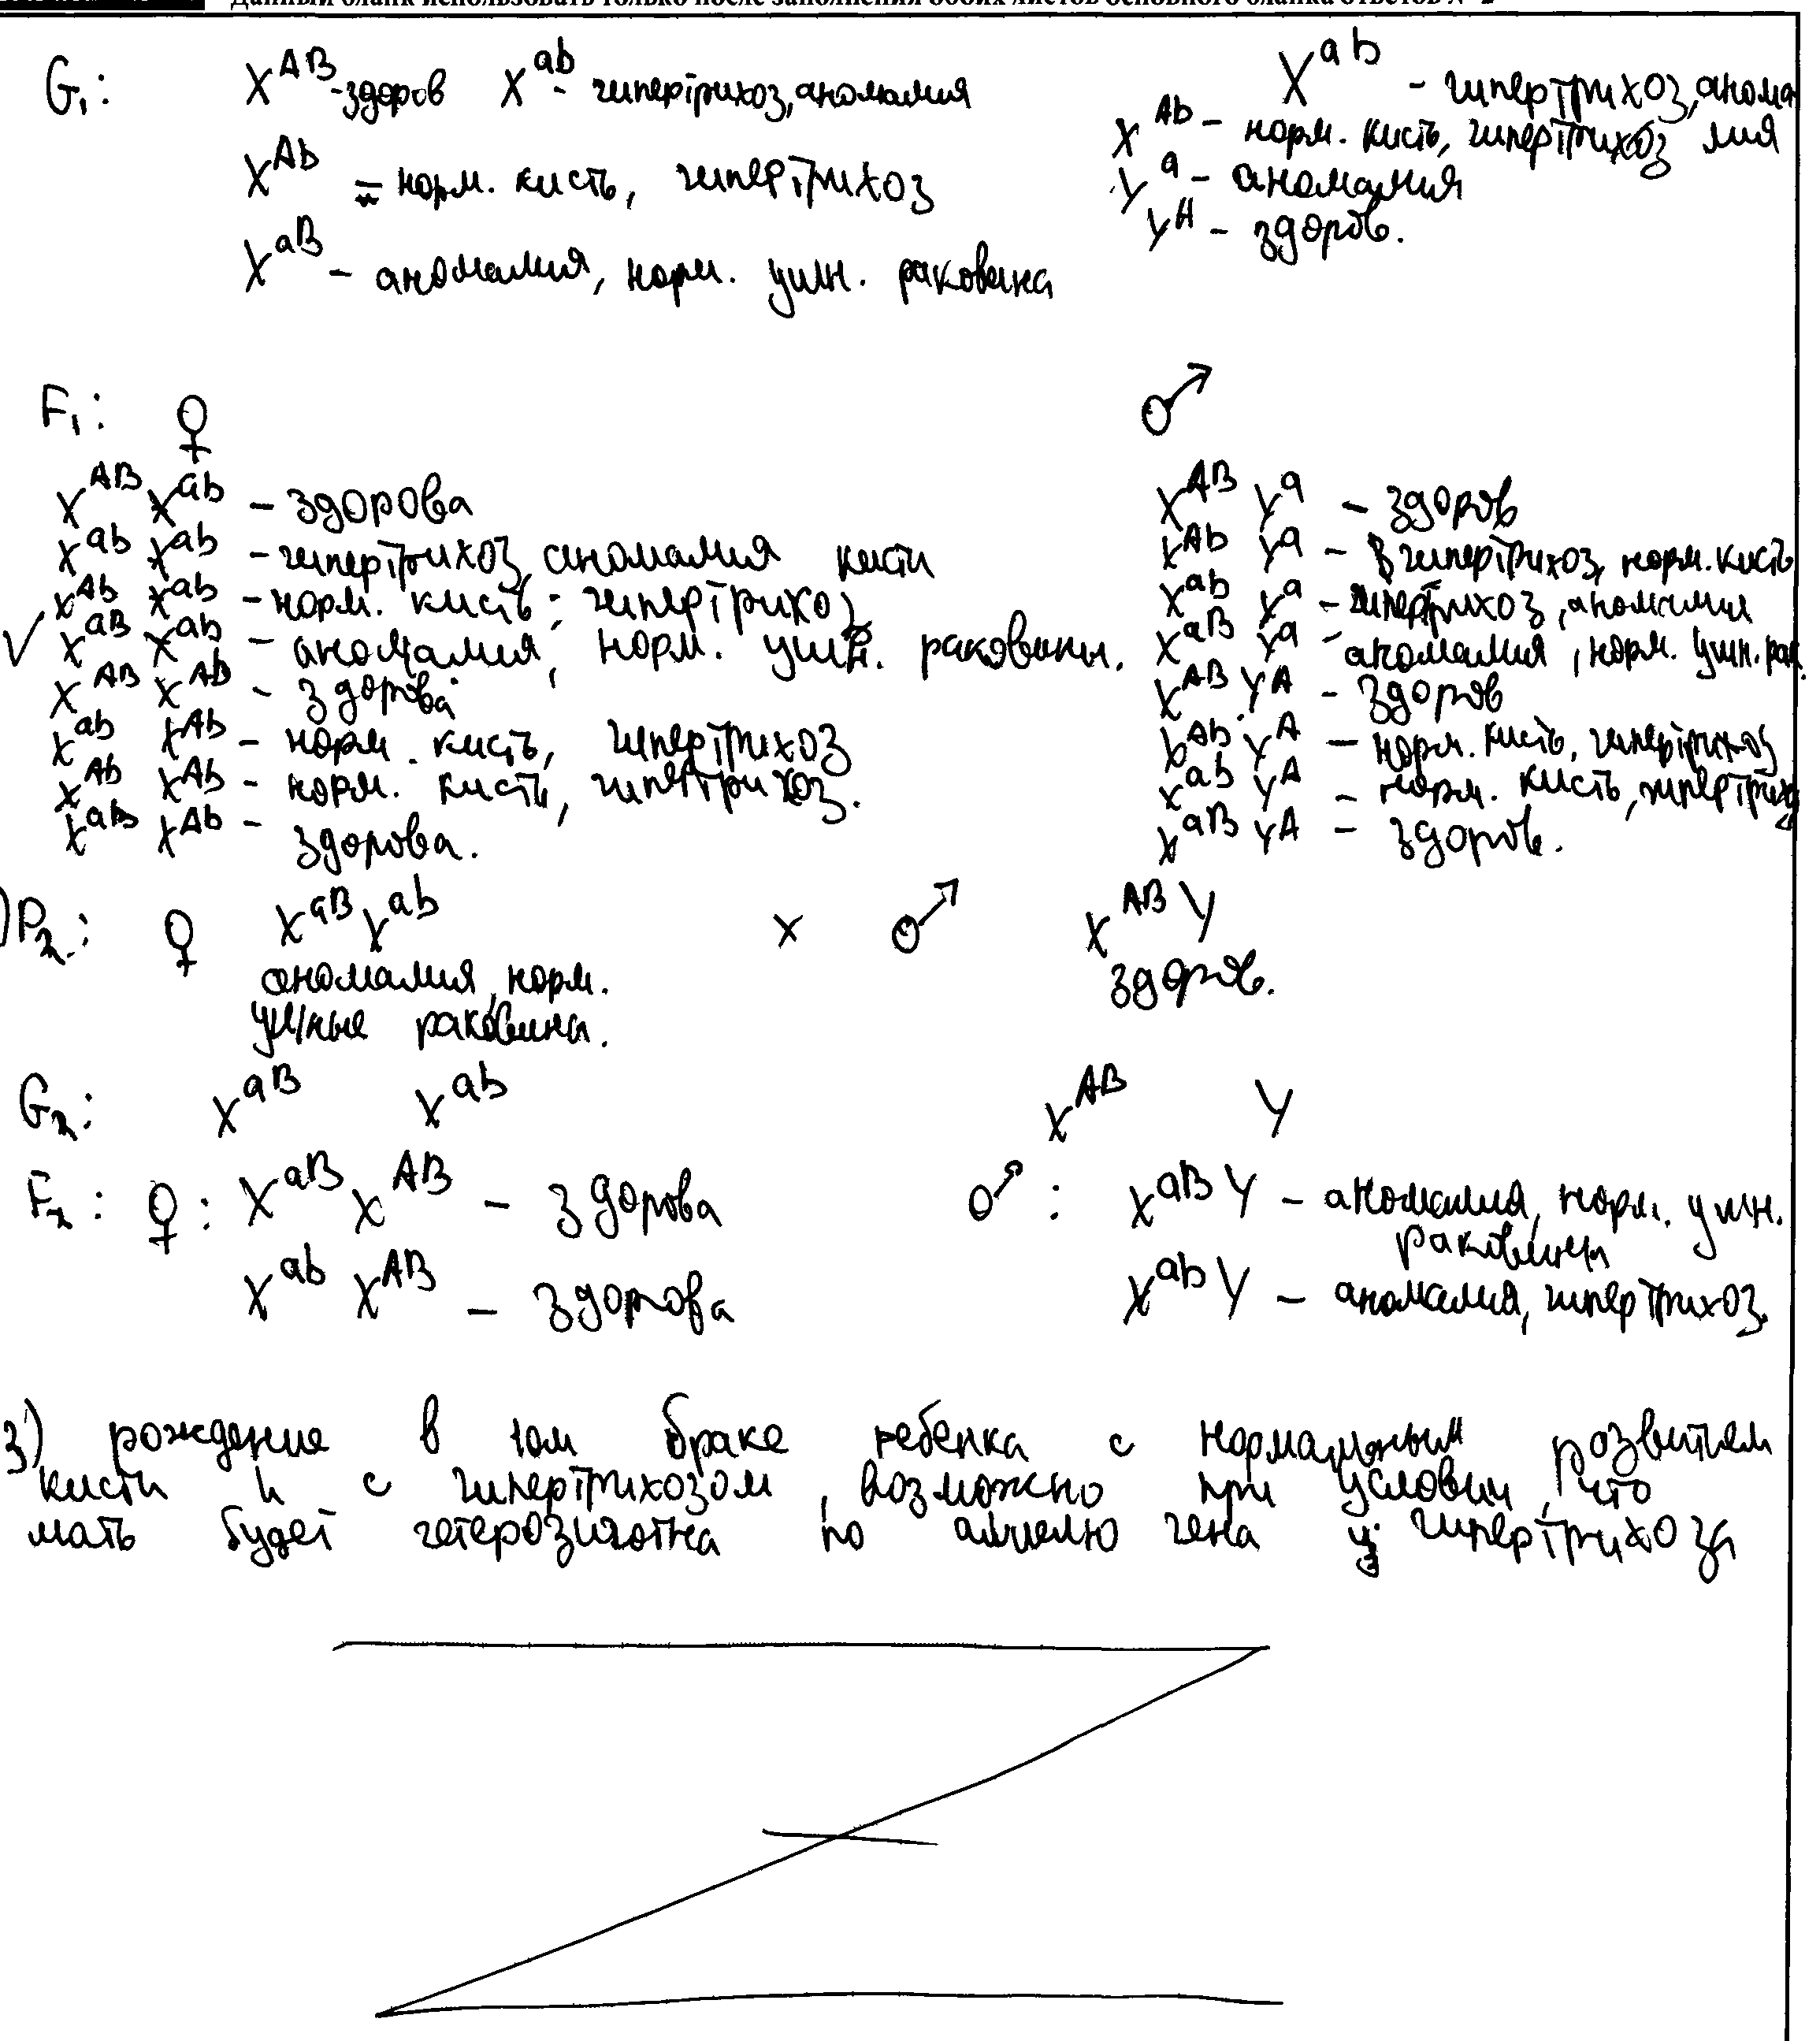 Данный бланк использовать только после заполнения обоих листов основного бланка ответов № 2
G₁: X^AB - здоров X^ab - гипертрихоз, аномалия
X^Ab = норм. кисть, гипертрихоз
X^aB - аномалия, норм. ушн. раковина
X^ab - гипертрихоз, анома
X^Ab - норм. кисть, гипертрихоз лия
Y^a - аномалия
Y^A - здоров.
F₁: ♀
X^AB X^ab - здорова
X^ab X^ab - гипертрихоз, аномалия кисти
X^Ab X^ab - норм. кисть; гипертрихоз
✓ X^aB X^ab - аномалия, норм. ушн. раковины.
X^AB X^Ab - здорова
X^ab X^Ab - норм. кисть, гипертрихоз
X^Ab X^Ab - норм. кисть, гипертрихоз.
X^aB X^Ab - здорова.
♂
X^AB Y^a - здоров
X^Ab Y^a - гипертрихоз, норм. кисть
X^ab Y^a - гипертрихоз, аномалия
X^aB Y^a - аномалия, норм. ушн. рак.
X^AB Y^A - здоров
X^Ab Y^A - норм. кисть, гипертрихоз
X^ab Y^A - норм. кисть, гипертрихоз
X^aB Y^A - здоров.
)P₂: ♀ X^aB X^ab x ♂ X^AB Y
аномалия, норм. здоров.
ушные раковина.
G₂: X^aB X^ab X^AB Y
F₂: ♀: X^aB X^AB - здорова ♂: X^aB Y - аномалия, норм. ушн.
раковины
X^ab X^AB - здорова X^ab Y - аномалия, гипертрихоз.
3) рождение в 1ом браке ребенка с нормальным розвитием
кисти и с гипертрихозом, возможно при условии, что
мать будет гетерозиготна по аллелю гена гипертрихоза